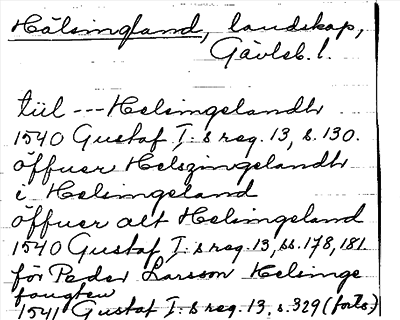 Hälsingland, landskap,
Gävleb. l.
tiil --- Helsingelandh
1540 Gustaf I:s reg. 13, s. 130.
öffuer Helszingelandh
i Helsingeland
öffuer alt Helsingeland
1540 Gustaf I:s reg. 13, ss. 178, 181.
för Peder Larsson Helsinge
fougten
1541 Gustaf I:s reg. 13, s. 329 (forts.)